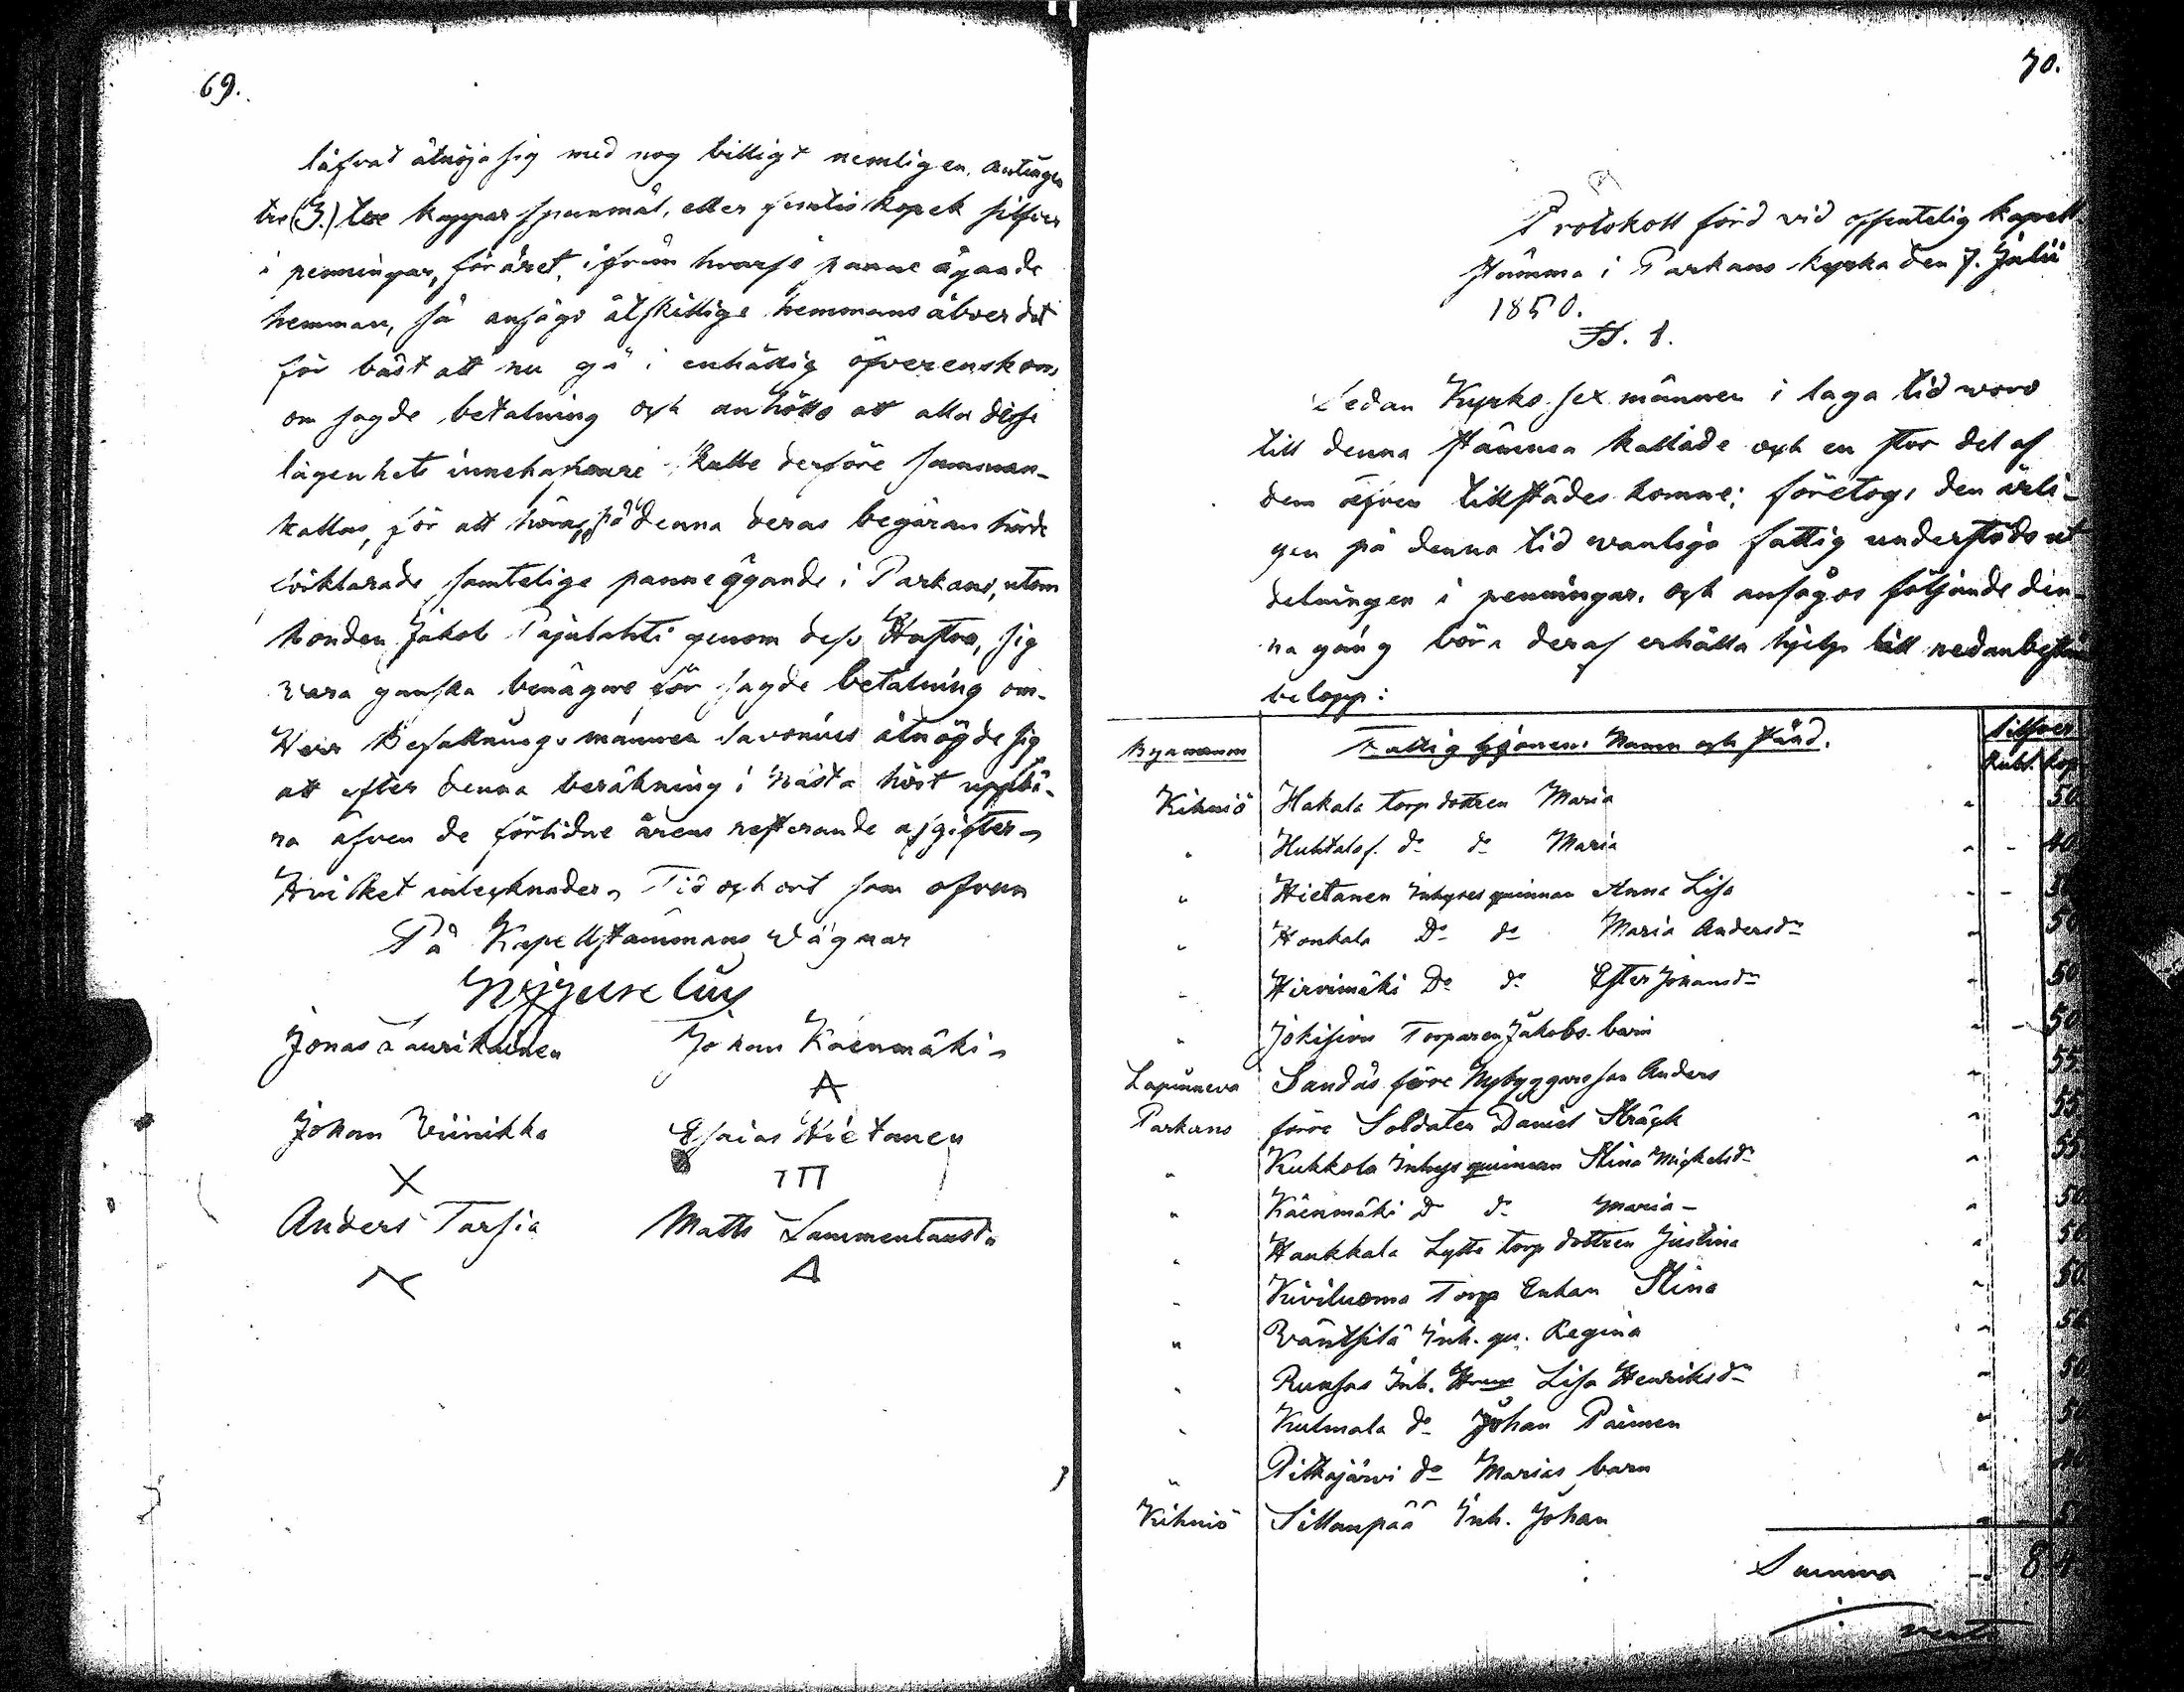 69.
låfvat åtnöja sig med nog billigt nemligen, antingen
tre (3.) kappar spannmål, eller femtio kopek silfver
i penningar, för året, ifrån hvarje panne ägande
hemman, så ansågo åtskillige hemmans åboer det
för bäst att nu gå i enhällig öfverenskom
om sagde betalning och anhöllo att alla desse
lägenhets innehafvare skulle derföre samman-
kallas, för att höras, på denna deras begäran hörde
förklarade samtelige panneägande i Parkano, utom
bonden Jakob Pajulahti genom dess Hustru, sig
vara ganska benägne för sagde betalning om-
Herr Befallningsmannen Savonius åtnögde sig
att efter denna beräkning i nästa höst uppbä-
ra äfven de förlidne årens resterande afgifter,
Hvilket intecknades, Tid och ort som ofvan
På Kapellstämmans Vägnar
Jonas Laurikainen Johan Käenmäki
Johan Viinikka Esaias Hietanen
X
Anders Tarsia Matts Lammentausta
70.
Protokoll förd vid offentelig Kapell
stämma i Parkano kyrka den 7. Julii
1850.
§. 1.
Sedan Kyrko sexmännen i laga tid word
till denna stämma kallade och en stor del af
dem äfven tillstädes komne; företogs den årli-
gen på denna tid vanliga fattig understöds ut
delningen i penningar, och ansågos följande den-
na gång böra deraf erhålla hjelp till nedanbestämda
belopp:
Byanamn Fattig hjonens Namn och stånd. Silfver
Rubl. Kop.
Kihniö Hakala torp dottren Maria " 50
" Huhtalaf. do do Maria " - 40
" Hietanen Inhyses quinnan Anna Lisa " -
" Honkala Do do Maria Andersdr " 50
" Hirvimäki Do do Ester Johansdr " 50
" Jokisivu Torparen Jakobs barn " - 50
Lapinneva Sandås förre Nybyggare son Anders 55
Parkano förre Soldaten Daniel Kräck " 55
" Kukkola Inhys quinnan Stina Michelsdr " 55
" Käenmäki Do do Maria - " 50
" Haukkala Lytte torp dottren Justina " 50
" Kiviluoma Torp Enkan Stina " 50
" Väntsilä Inh. qu. Regina " 50
" Runsas Inh. Lisa Henriksdr " 50
" Kulmala do Johan Paimen " 50
" Pitkajärvi do Marias barn " 40
Kihniö Sillanpää Inh. Johan "
Summa - 8